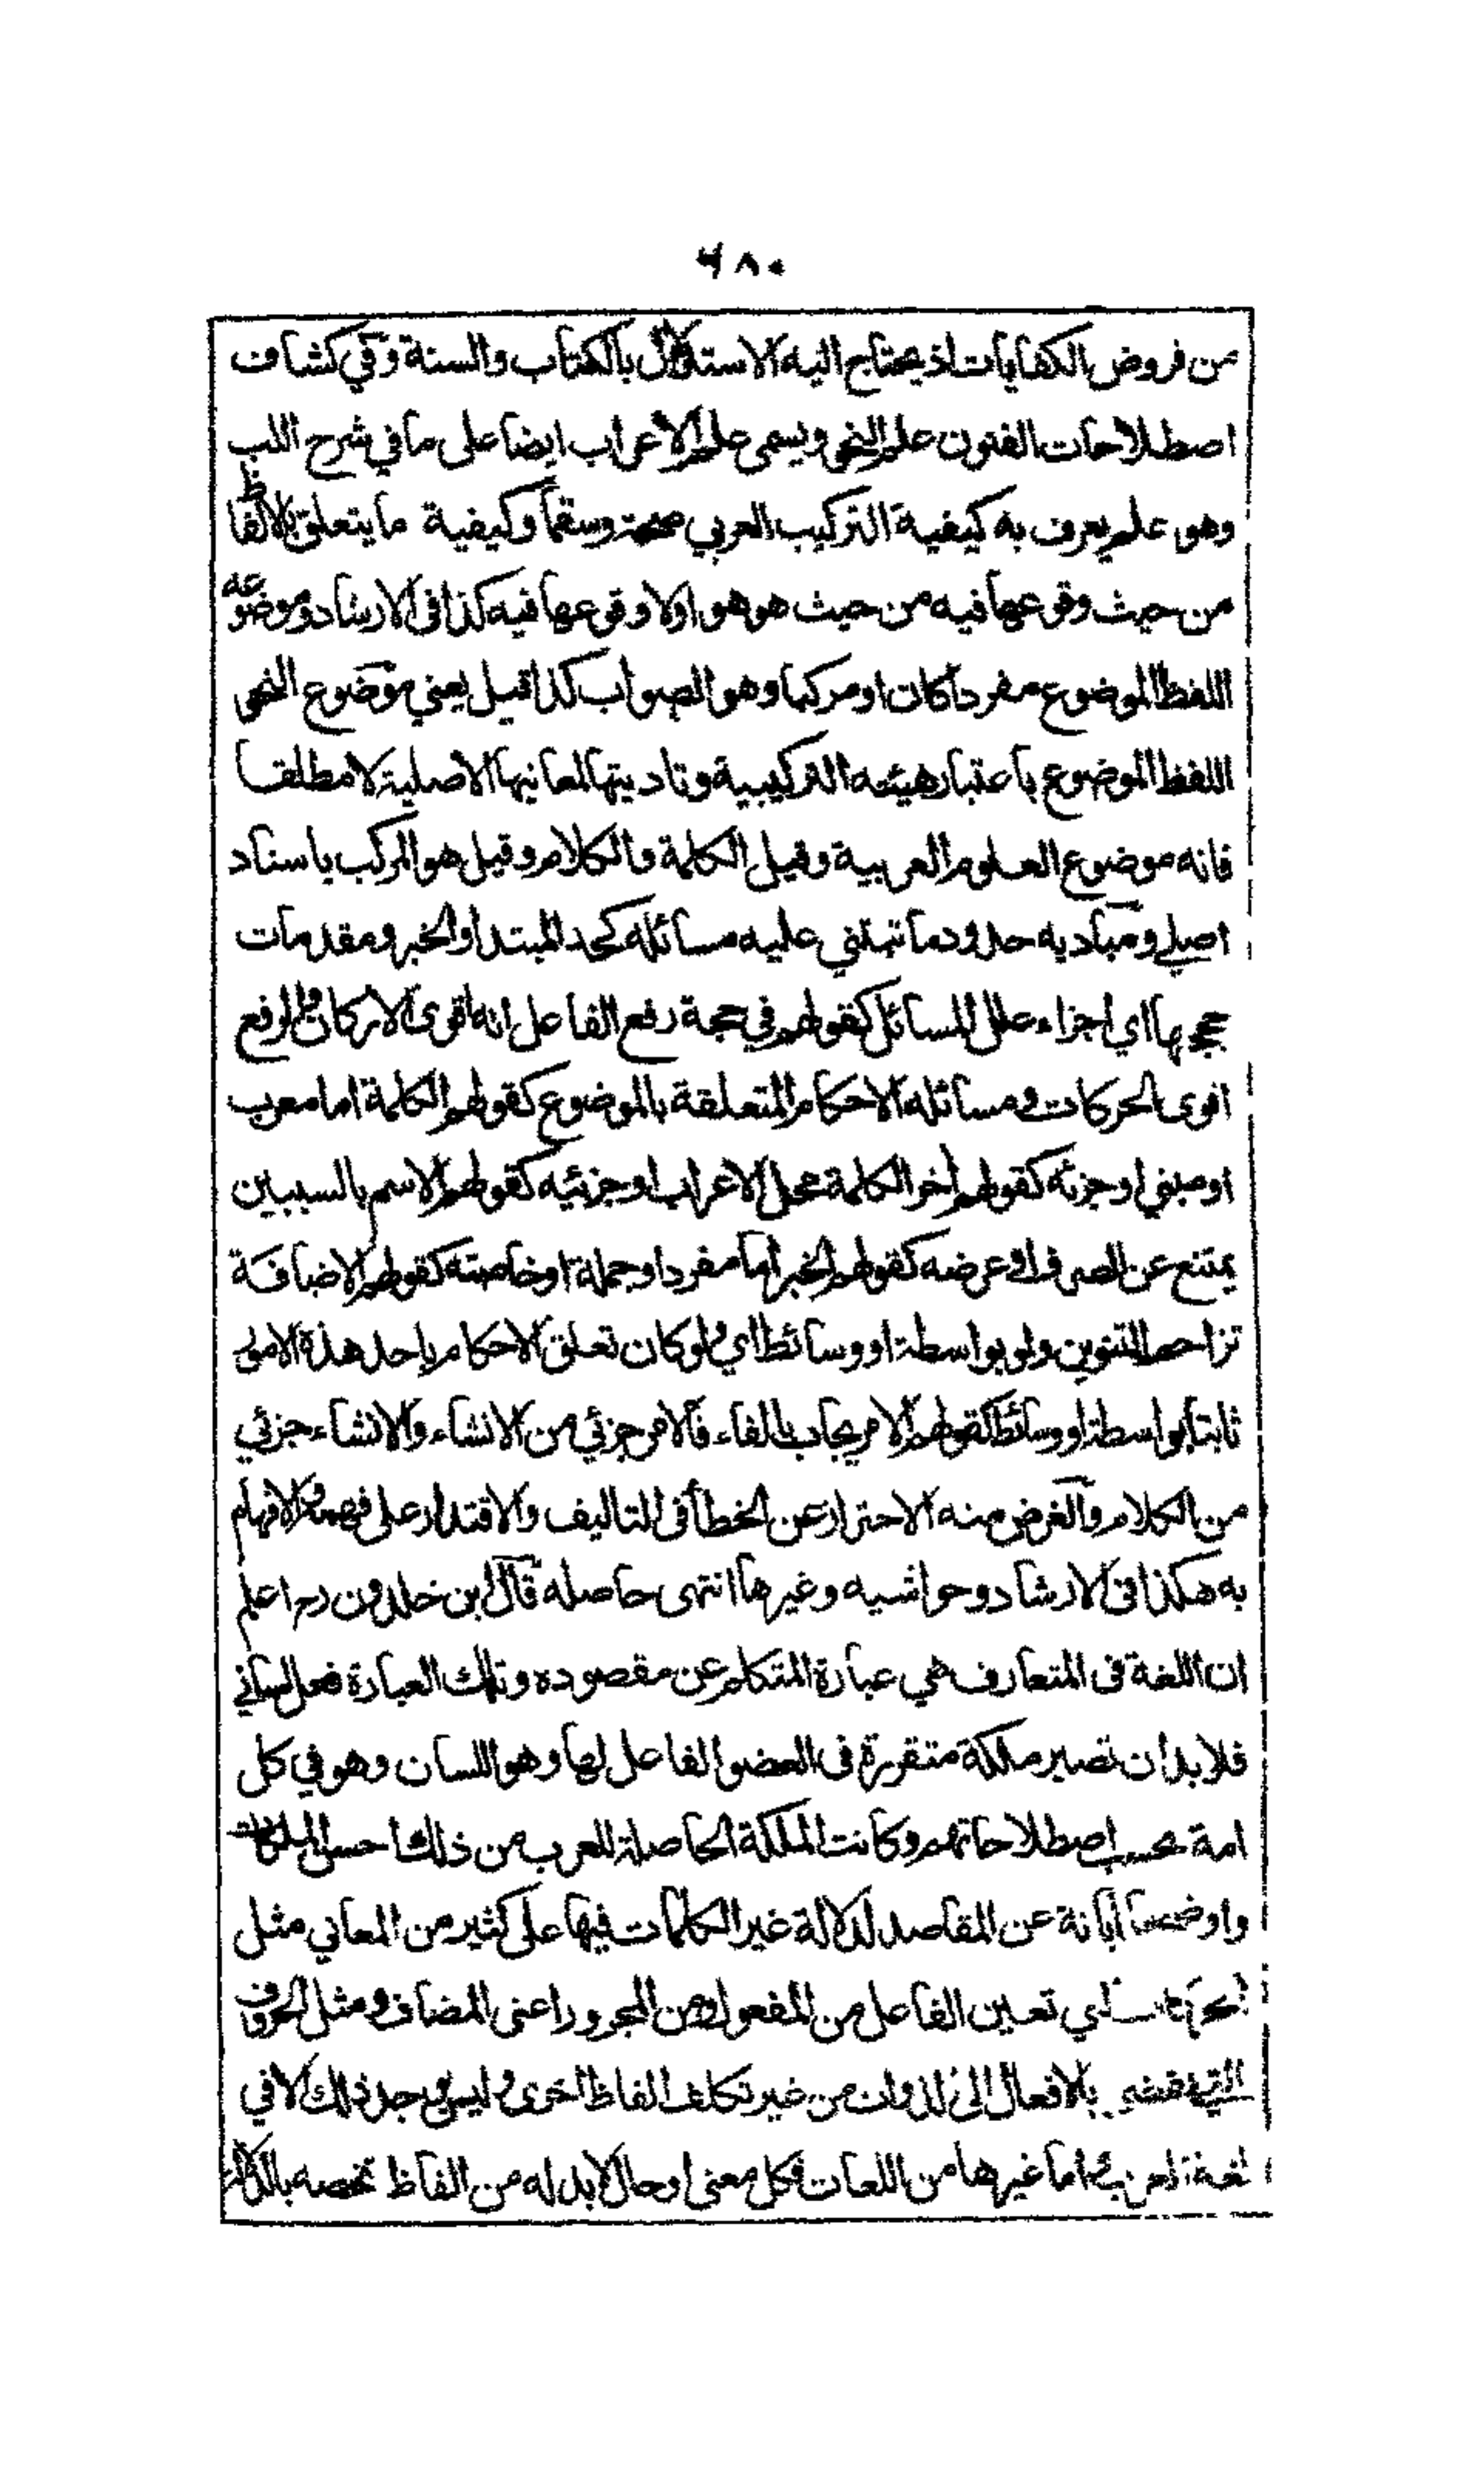 ٦٨٠
من فروض الكفايات اذ يحتاج اليه الاستدلال بالكتاب والسنة وفي كشاف
اصطلاحات الفنون علم النحو ويسمى علم الاعراب ايضا على ما في شرح اللب
وهو علم يعرف به كيفية التركيب العربي صحة وسقما وكيفية ما يتعلق بالالفاظ
من حيث وقوعها فيه من حيث هو هو اولا وقوعها فيه كذا في الارشاد وموضوعه
اللفظ الموضوع مفردا كان او مركبا وهو الصواب كذا قيل يعني موضوع النحو
اللفظ الموضوع باعتبار هيئته التركيبية وتاديتها لمعانيها الاصلية لا مطلقا
فانه موضوع العلوم العربية وقيل الكلمة والكلام وقيل هو المركب باسناد
اصلي ومباديه حدود ما تبتني عليه مسائله كحد المبتدأ والخبر ومقدمات
حججها اي اجزاء علل المسائل كقولهم في حجة رفع الفاعل انه اقوى الاركان والرفع
اقوى الحركات ومسائله الاحكام المتعلقة بالموضوع كقولهم الكلمة اما معرب
او مبني او جزئه كقولهم آخر الكلمة محل الاعراب او جزئيه كقولهم الاسم بالسببين
يمتنع عن الصرف او عرضه كقولهم الخبر اما مفرد او جملة او خاصته كقولهم الاضافة
تزاحم التنوين ولو بواسطة او وسائط اي ولو كان تعلق الاحكام باحد هذه الامور
ثابتا بواسطة او وسائط كقولهم الامر يجاب بالفاء فالامر جزئي من الانشاء والانشاء جزئي
من الكلام والغرض منه الاحتراز عن الخطأ في التاليف والاقتدار على فهمه والافهام
به هكذا في الارشاد وحواشيه وغيرها انتهى حاصله قال ابن خلدون رح اعلم
ان اللغة في المتعارف هي عبارة المتكلم عن مقصوده وتلك العبارة فعل لساني
فلا بد ان تصير ملكة متقررة في العضو الفاعل لها وهو اللسان وهو في كل
امة بحسب اصطلاحاتهم وكانت الملكة الحاصلة للعرب من ذلك احسن الملكات
واوضحها ابانة عن المقاصد لدلالة غير الكلمات فيها على كثير من المعاني مثل
الحركات التي تعين الفاعل من المفعول ومن المجرور اعني المضاف ومثل الحروف
التي تفضي بالافعال الى الذوات من غير تكلف الفاظ اخرى وليس يوجد ذلك الا في
لغة العرب واما غيرها من اللغات فكل معنى او حال لا بد له من الفاظ تخصه بالدلالة